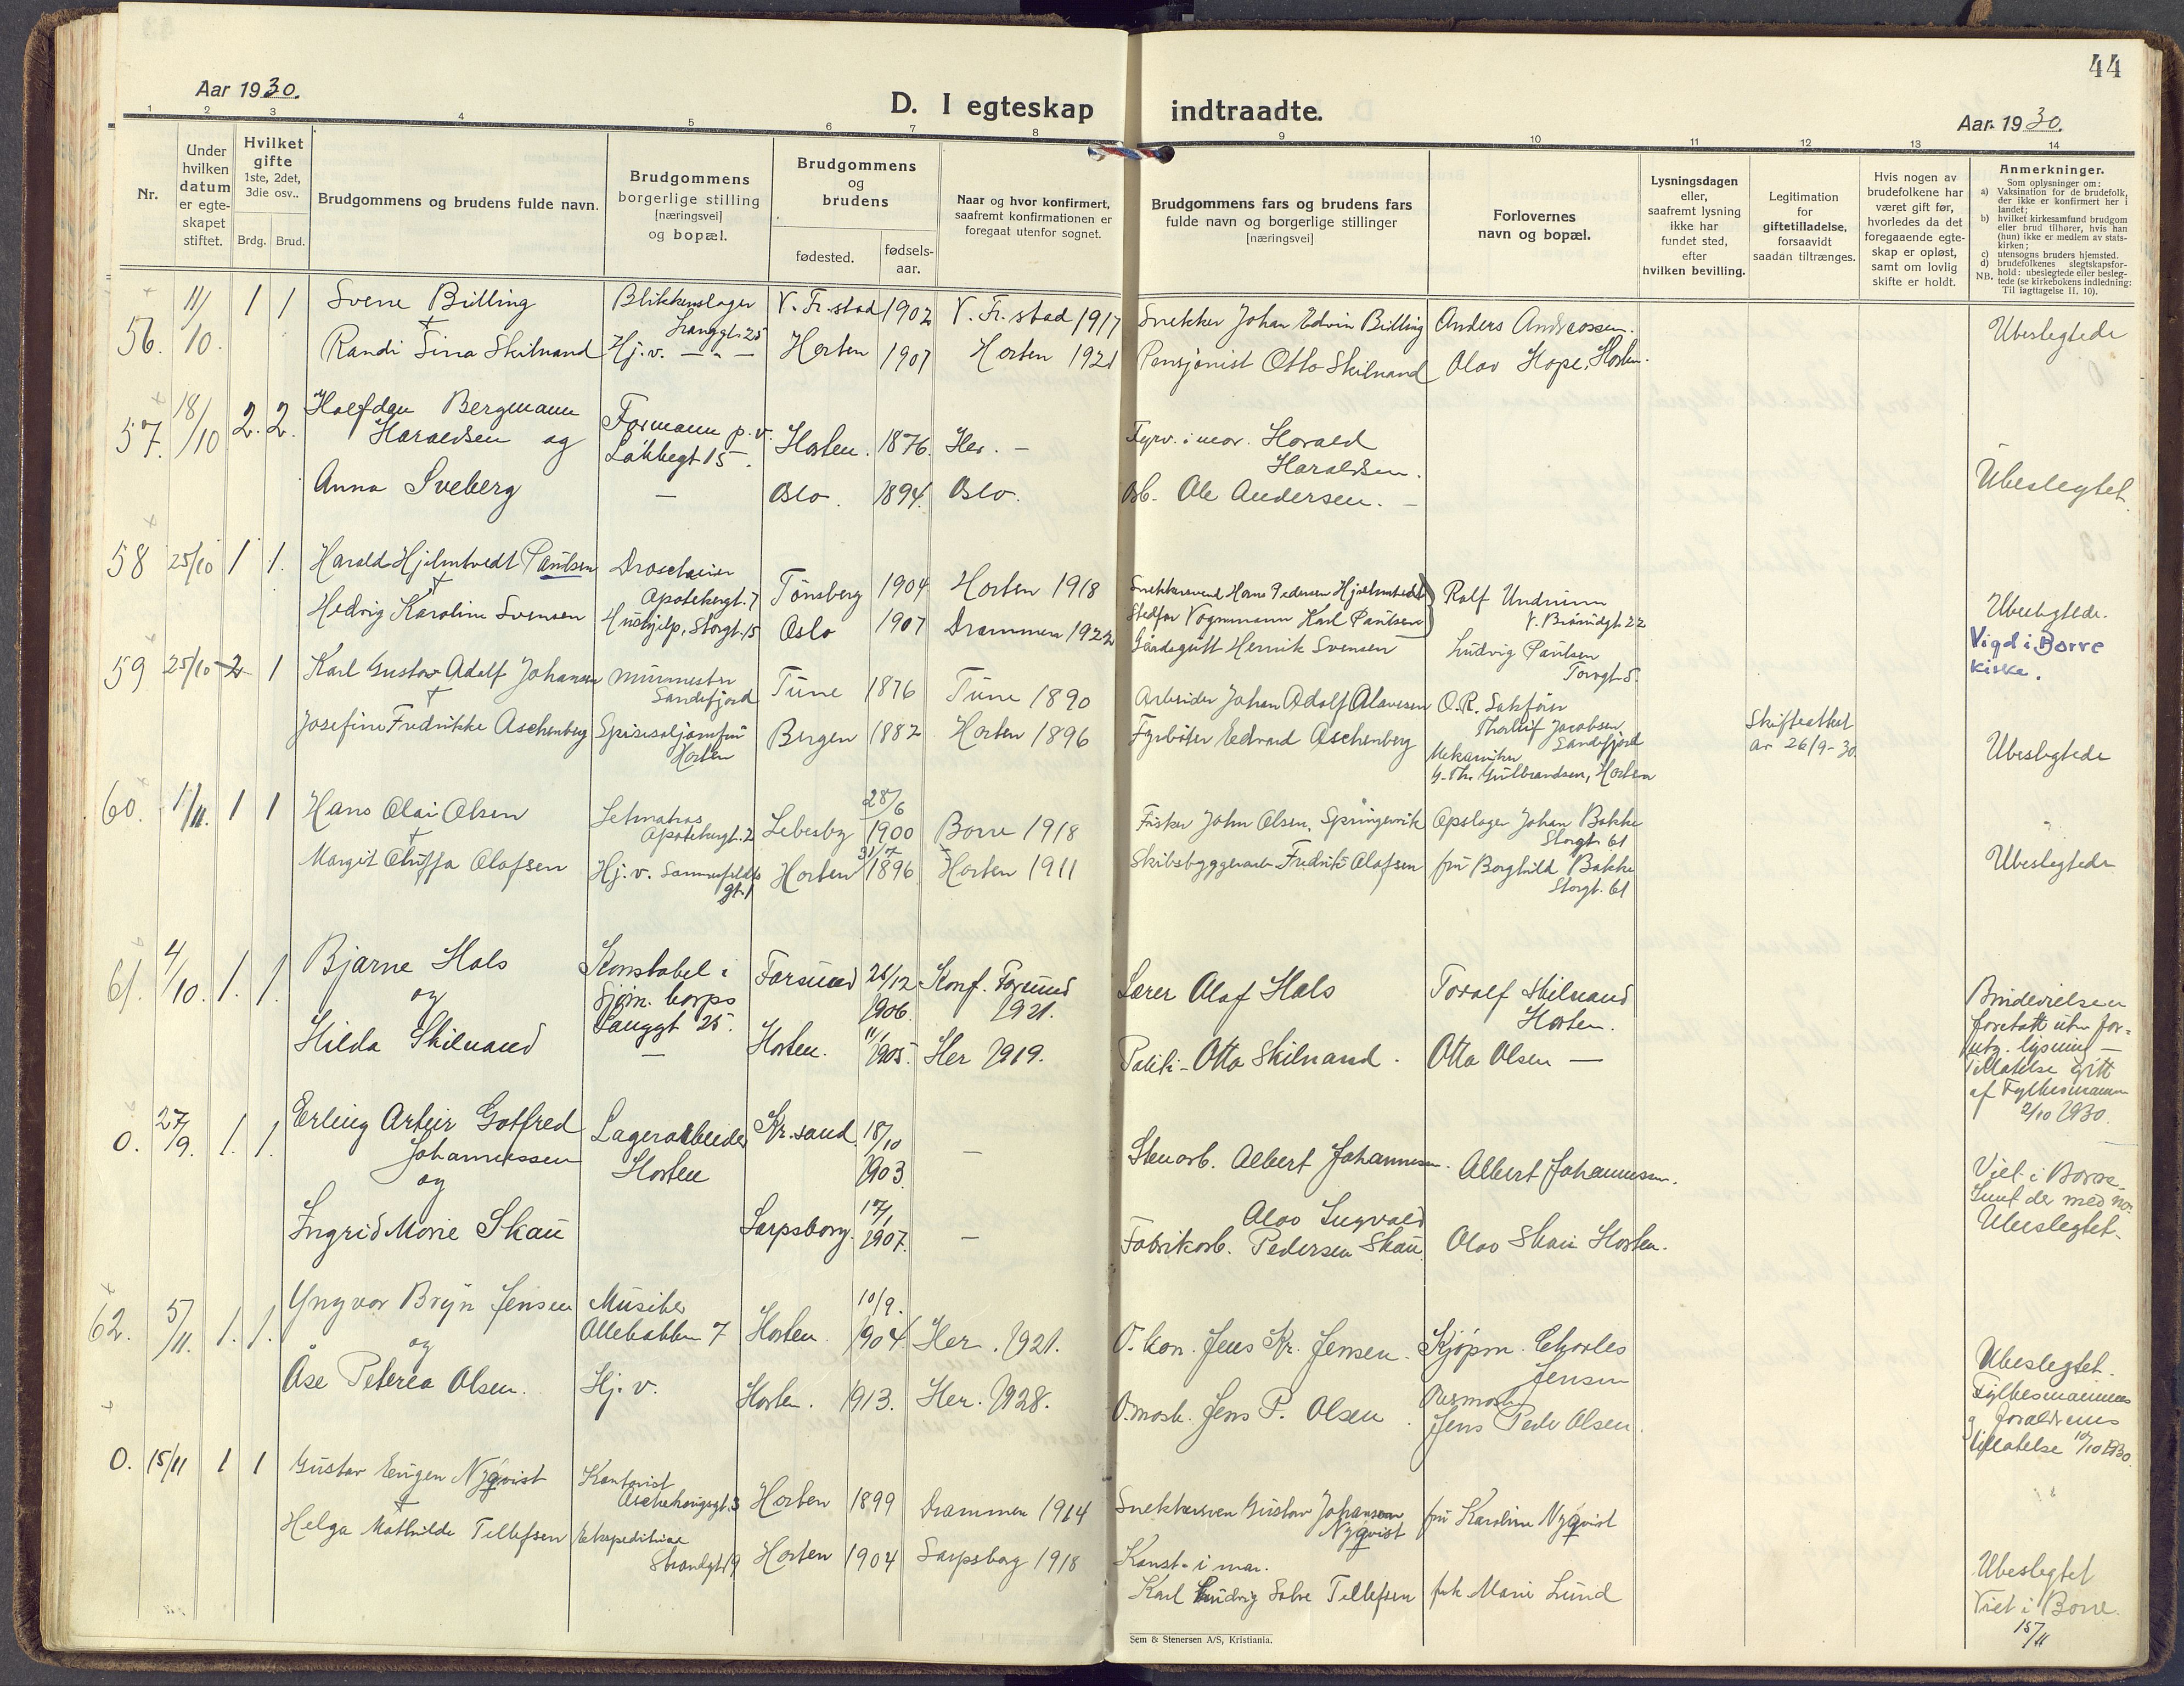 44
Aar 1930.
D. I egteskap indtraadte.
Aar 1930.
1 2 3 4 5 6 7 8 9 10 11 12 13 14
Nr.
Under hvilken datum er egteskapet stiftet.
Hvilket gifte 1ste, 2det, 3die osv..
Brdg. Brud.
Brudgommens og brudens fulde navn.
Brudgommens borgerlige stilling [næringsvei] og bopæl.
Brudgommens og brudens
fødested. fødsels-aar.
Naar og hvor konfirmert, saafremt konfirmationen er foregaat utenfor sognet.
Brudgommens fars og brudens fars fulde navn og borgerlige stillinger [næringsvei]
Forlovernes navn og bopæl.
Lysningsdagen eller, saafremt lysning ikke har fundet sted, efter hvilken bevilling.
Legitimation for giftetilladelse, forsaavidt saadan tiltrænges.
Hvis nogen av brudefolkene har været gift før, hvorledes da det foregaaende egteskap er opløst, samt om lovlig skifte er holdt.
Anmerkninger.
Som oplysning om:
a) Vaksination for de brudefolk, der ikke er konfirmert her i landet;
b) hvilket kirkesamfund brudgom eller brud tilhører, hvis han (hun) ikke er medlem av statskirken;
c) utensogns bruders hjemsted.
d) brudefolkenes slegtskapsforhold: ubeslegtede eller beslegtede (se kirkebokens indledning:
NB. Til iagttagelse II. 10).
56. 11/10. 1 1 Sverre Billing Blikkenslager Langgt. 25 V. Fr. stad 1902 V. Fr. stad 1917 Snekker Johan Edvin Billing Anders Andreassen. Ubeslegtede
Randi Sina Skilnand Hj. v. — " — Horten 1907 Horten 1921 Pensjonist Otto Skilnand Olav Hope, Horten.
57. 18/10 2. 2. Halfdan Bergmann Haraldsen og Formann p. v. Løkkegt 15 Horten. 1876. Her. — Fyrv. i mar. Harald Haraldsen.
Anna Sveberg — Oslo. 1894. Oslo. Ole Andersen. — Ubeslegtet
58 25/10 1 1. Harald Hjelmtvedt Paulsen Apotekergt. 7 Tønsberg 1904 Horten 1918 Snekkersvend Hans Pedersen Hjelmtvedt Rolf Undrum
Stedfar Vognmann Karl Paulsen
Hedvig Karoline Svensen Hushjelp, Storgt. 15 Oslo 1907 Drammen 1922 Gårdsgutt Henrik Svensen Ludvig Paulsen Torvgt. 5. Ubeslegtede.
Vigd i Borre kirke.
59 25/10 2 1 Karl Gustav Adolf Johansen Murmester Sandefjord Tune 1876 Tune 1890 Arbeider Johan Adolf Olavesen O.R. Sakfører Thorleif Jacobsen Sandefjord Skifteattest av 26/9-30.
Josefine Fredrikke Aschenberg Spisesaljomfru Horten Bergen 1882 Horten 1896 Fyrbøter Edvard Aschenberg Mekaniker G. Th. Gulbrandsen, Horten Ubeslegtede
60. 1/11. 1 1 Hans Olai Olsen Letmatros Apotekergt. 2 Lebesby 28/6 1900 Borre 1918 Fisker John Olsen, Springervik Opslager Johan Bakke Storgt. 61
Margit Oluffa Olafsen Hj. v. gt. 1 Horten 31/7 1896 Horten 1911 Skibsbyggerarb. Fredrik Olafsen fru Borghild Bakke Storgt. 61 Ubeslegtede
61. 4/10. 1. 1. Bjarne Hals og Konstabel i Sjøm. korps Langgt 25. Farsund 26/12 1906. Konf. Farsund 1921. Lærer Olaf Hals Toralf Skilnand Horten.
Hilda Skilnand — Horten. 1905. Her 1919. Otto Skilnand. Otto Olsen —
Brudevielsen foretatt uten forutg. lysning — Tillatelse gitt af Fylkesmann 2/10 1930.
0. 27/9. 1. 1. Erling Artur Gotfred Johannessen og Lagerarbeider Horten Kr. sand 18/10 1903. — Stenarb. Albert Johannessen. Albert Johannessen.
Ingrid Marie Skau Sarpsborg. 17/1 1907. — Fabrikarb. Olav Ingvald Pedersen Skau Olav Skau Horten.
Viet i Borre. Innf. der med no. Ubeslegtet.
62. 5/11. 1. 1. Yngvar Bryn Jensen og Musiker Ollebakken 7 Horten. 10/9. 1904 Her. 1921. O. kan. Jens Kr. Jensen. Kjøpm. Charles Jensen
Åse Peterea Olsen. Hj. v. Horten. 1913. Her. 1928. O.mask. Jens P. Olsen. Overmask. Jens Peder Olsen.
Ubeslegtet. Fylkesmannens og foreldrenes tillatelse 10/10 1930.
0. 15/11 1 1 Gustav Eugen Nyqvist Kontorist Horten 1899 Drammen 1914 Snekkersven Gustav Johansson Nyqvist fru Karoline Nyqvist
Helga Mathilde Tellefsen Ekspeditrise Strandgt. 19 Horten 1904 Sarpsborg 1918 Konst. i mar. Karl Ludvig Salve Tellefsen frk. Marie Lund
Ubeslegtet Viet i Borre. 15/11
Sem & Stenersen A/S, Kristiania.